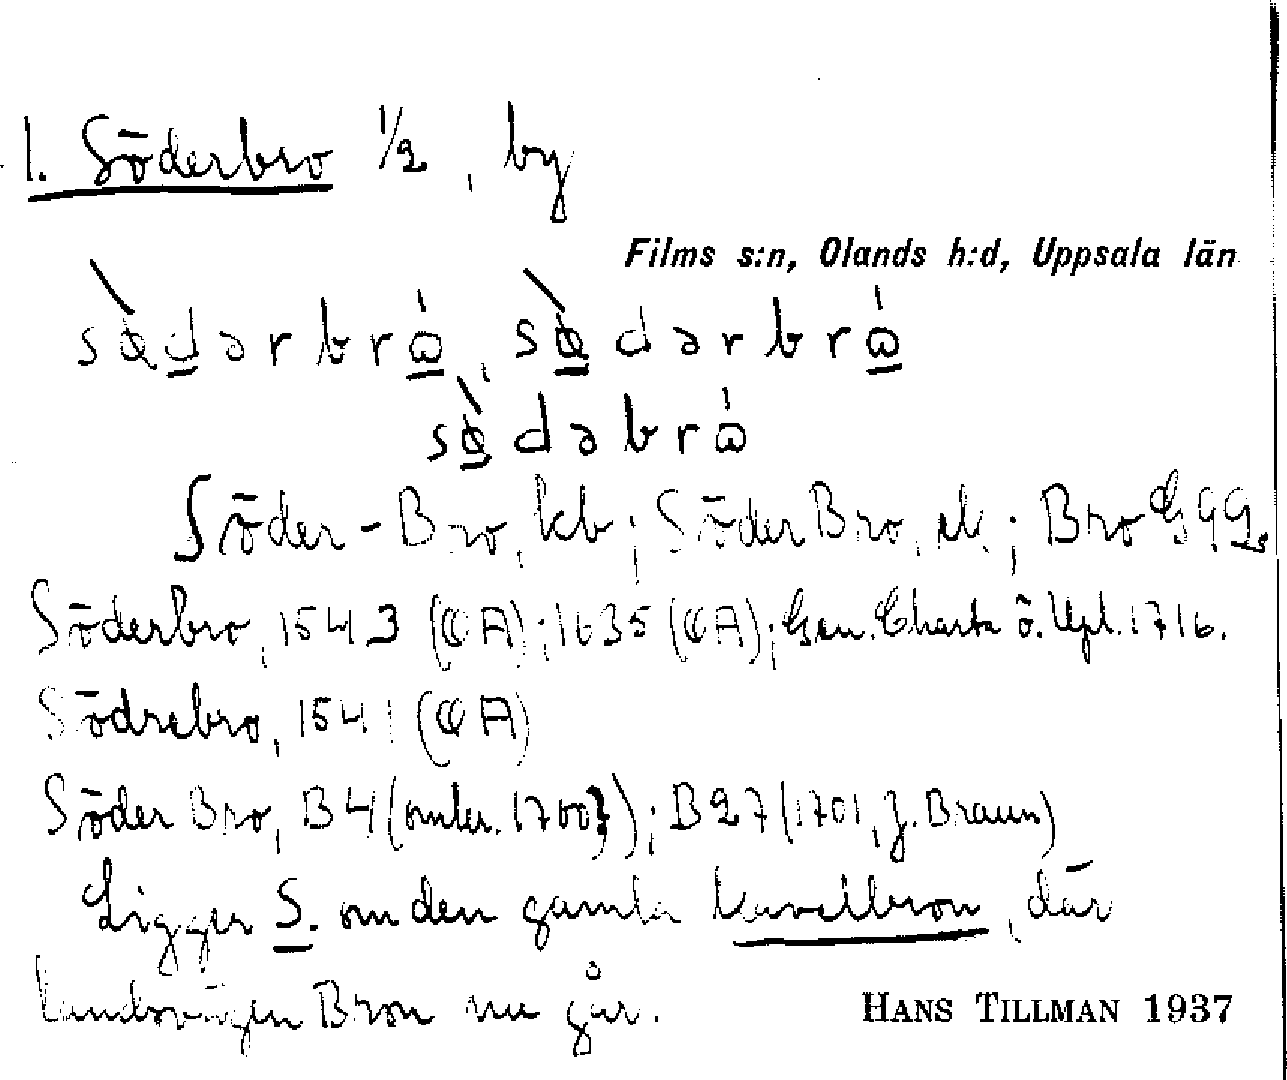 1. Söderbro 1/2, by
Films s:n, Olands h:d, Uppsala län
sø̀dərbrɷ́, sø̀dərbrɷ́
sø̀dəbrɷ́
Söder-Bro, kb; Söder Bro, el.; Bro G992
Söderbro, 1543 (OA); 1635 (OA); Gen. Charta ö. Upl. 1716.
Södrebro, 1541 (OA)
Söder Bro, B4 (omkr. 1700?); B27 (1701, J. Braun)
Ligger S. om den gamla kavelbron, där
landsvägen Bron nu går.
HANS TILLMAN 1937